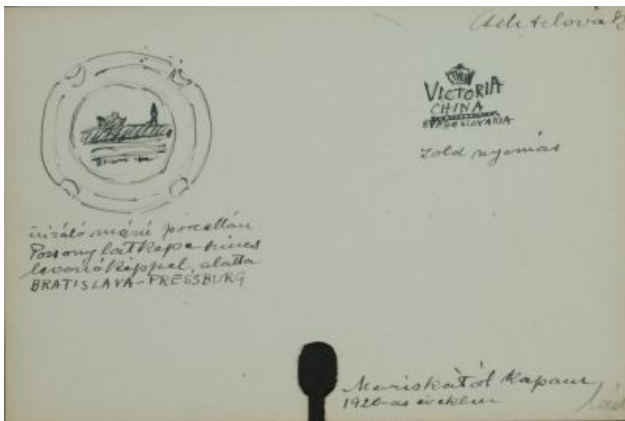 VICTORIA
CHINA
CZECHOSLOVAKIA
zöld nyomás
irizáló mázú porcellán
Pozsony látképe színes
levonóképpel, alatta
BRATISLAVA-PRESSBURG
Mariskától kapam
1920-as években